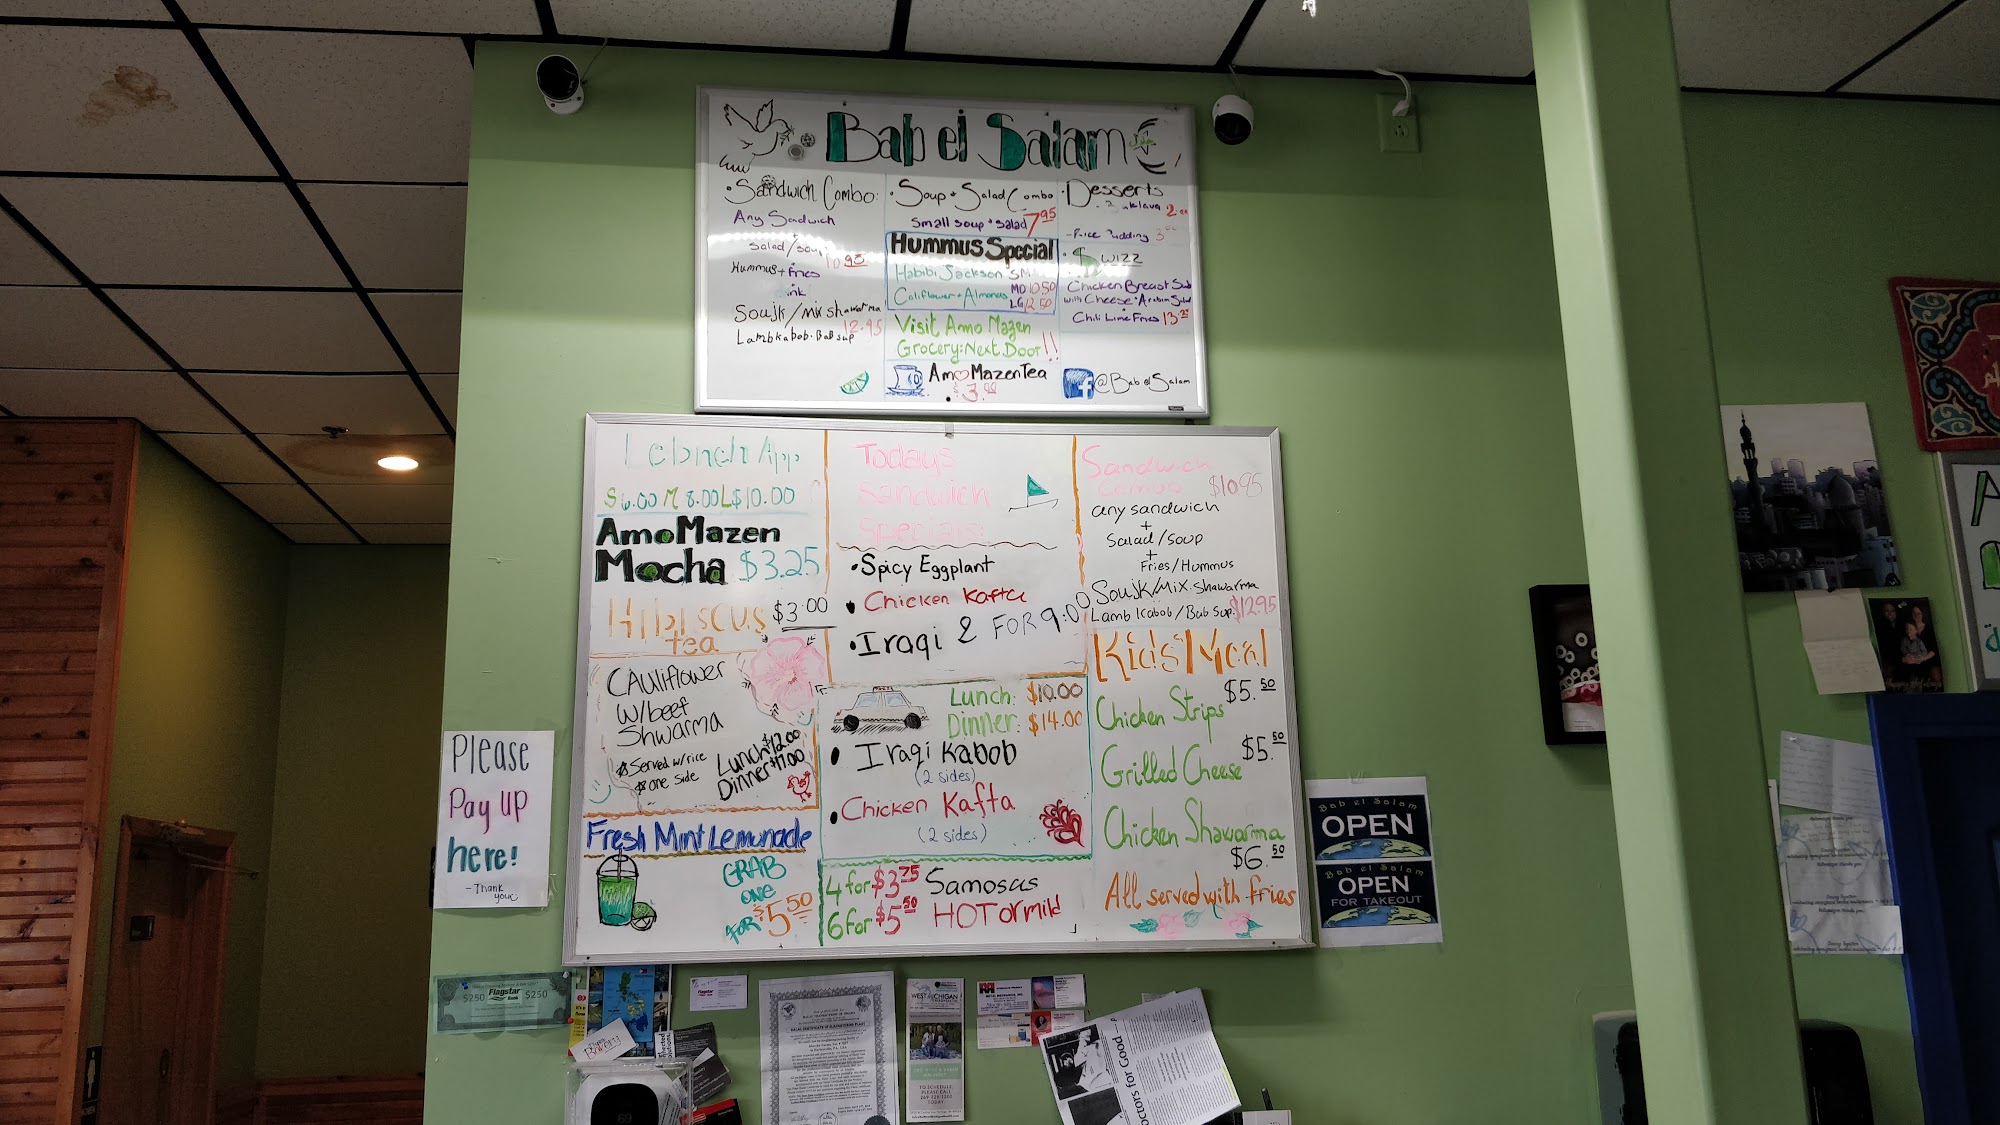 Bab el Salam
• Sandwich Combo:
Any Sadwich
+
Salad/soup
10.95
Hummus + Fries
Soujk/Mix shawarma
Lambkabob. Bab sup 12.95
• Soup + Salad Combo
Small soup + salad 7.95
Hummus Special
Habibi Jackson SM
Califlower + Almonds MD 10.50
LG 12.50
Visit Amo Mazen
Grocery: Next Door!!
AmoMazenTea
$3.00
• Desserts
- Rice Pudding 3.00
• $wizz
Chicken Breast Sub
with Cheese + Arabin Salad
Chili Lime Fries 13.25
f @Bab el Salam
Lebneh App
S 6.00 M 8.00 L $10.00
AmoMazen
Mocha $3.25
Hibiscus $3.00
tea
CAuliflower
w/beef
Shwarma
Served w/rice
& one side
Lunch $12.00
Dinner $17.00
Fresh Mint Lemonade
GRAB
ONE
FOR $5.50
Todays
Sandwich
Specials:
• Spicy Eggplant
• Chicken Kafta
• Iraqi 2 FOR 9.00
Lunch: $10.00
Dinner: $14.00
• Iraqi Kabob
(2 sides)
• Chicken Kafta
(2 sides)
4 for $3.75 Samosas
6 for $5.50 HOT or mild
Sandwich
Combo $10.95
any sandwich
+
Salad/soup
+
Fries/Hummus
Soujk/Mix. Shawarma
Lamb Kabob/Bab sup. $12.95
Kids' Meal
Chicken Strips $5.50
Grilled Cheese $5.50
Chicken Shawarma
$6.50
All served with fries
Please
Pay up
here!
- Thank
you
Bab el Salam
OPEN
Bab el Salam
OPEN
FOR TAKEOUT
$250 Flagstar Bank $250
WEST MICHIGAN
TO SCHEDULE
PLEASE CALL
TODAY
Doctors for Good
69